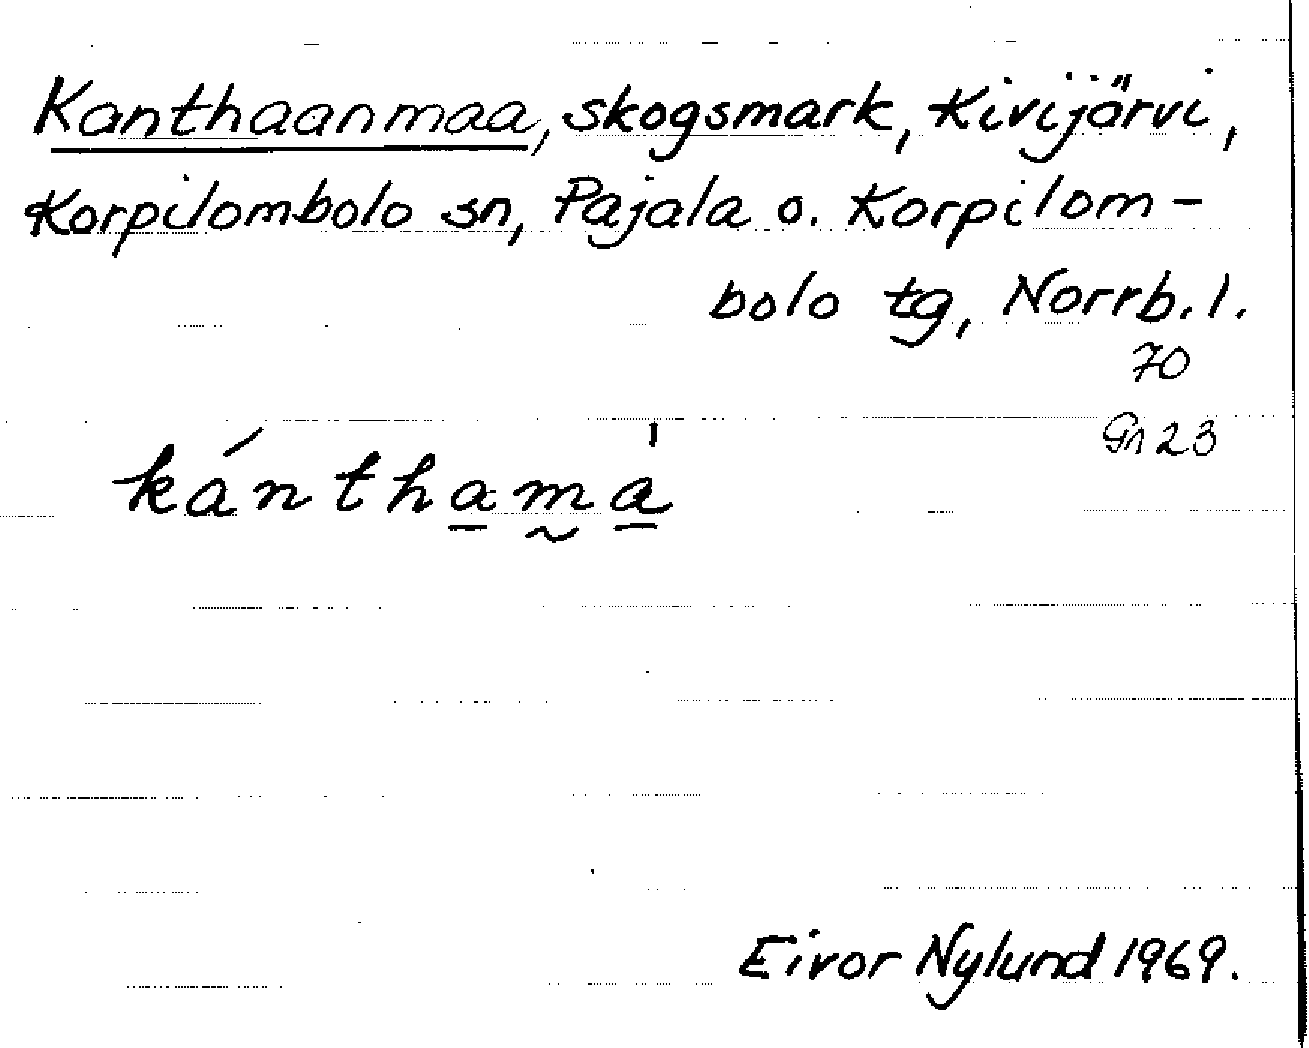 Kanthaanmaa, skogsmark, Kivijärvi,
Korpilombolo sn, Pajala o. Korpilom-
bolo tg, Norrb. l.
70
Gn 23
kánthama̍
Eivor Nylund 1969.